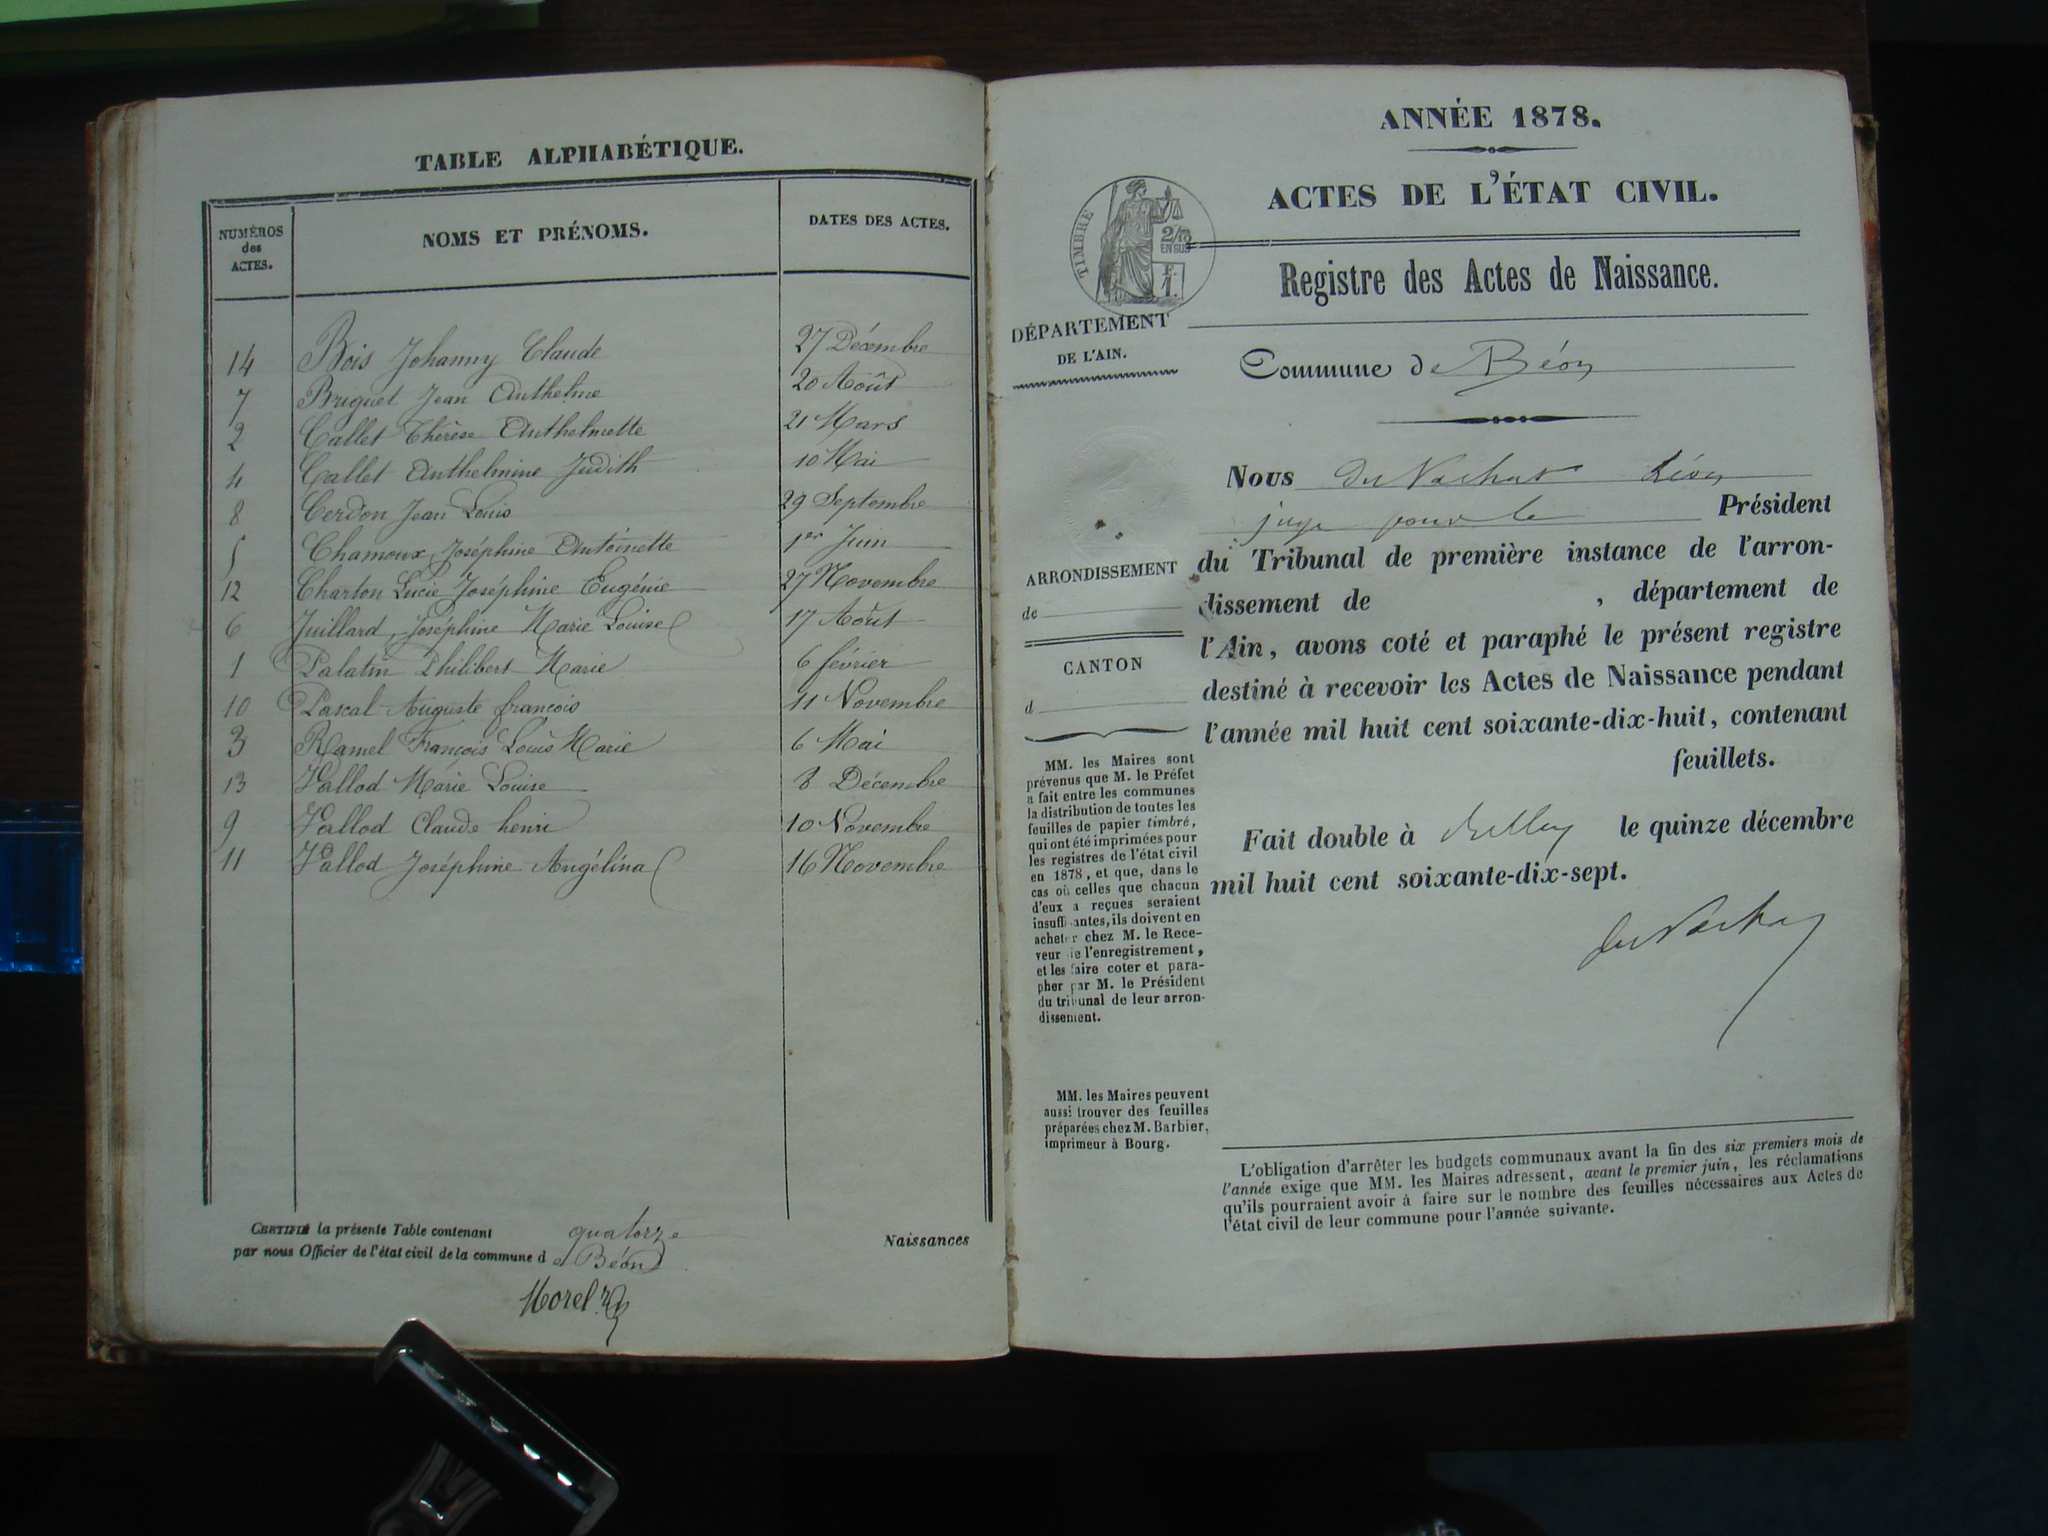 TABLE ALPHABÉTIQUE.
NUMÉROS des ACTES. NOMS ET PRÉNOMS. DATES DES ACTES.
14 Bois Johanny Claude 27 Décembre
7 Bruguet Jean Anthelme 20 Août
2 Callet Thérèse Anthelmette 21 Mars
4 Callet Anthelmine Judith 10 Mai
8 Cerdon Jean Louis 29 Septembre
5 Chamoux Joséphine Antoinette 1er Juin
12 Charton Lucie Joséphine Eugénie 27 Novembre
6 Juillard Joséphine Marie Louise 17 Août
1 Palatin Philibert Marie 6 février
10 Pascal Auguste françois 11 Novembre
3 Ramel François Louis Marie 6 Mai
13 Vallod Marie Louise 8 Décembre
9 Vallod Claude henri 10 Novembre
11 Vallod Joséphine Angélina 16 Novembre
CERTIFIÉ la présente Table contenant quatorze Naissances
par nous Officier de l'état civil de la commune d e Béon
Morel
ANNÉE 1878.
ACTES DE L'ÉTAT CIVIL.
TIMBRE
2/10
EN SUS
F.
1.
Registre des Actes de Naissance.
DÉPARTEMENT
DE L'AIN.
Commune de Béon
Nous du Nachat Léon
juge pour le Président
du Tribunal de première instance de l'arron-
dissement de , département de
l'Ain, avons coté et paraphé le présent registre
destiné à recevoir les Actes de Naissance pendant
l'année mil huit cent soixante-dix-huit, contenant
feuillets.
Fait double à Belley le quinze décembre
mil huit cent soixante-dix-sept.
du Nachat
ARRONDISSEMENT
de
CANTON
d
MM. les Maires sont
prévenus que M. le Préfet
a fait entre les communes
la distribution de toutes les
feuilles de papier timbré,
qui ont été imprimées pour
les registres de l'état civil
en 1878, et que, dans le
cas où celles que chacun
d'eux a reçues seraient
insuffisantes, ils doivent en
acheter chez M. le Rece-
veur de l'enregistrement,
et les faire coter et para-
pher par M. le Président
du tribunal de leur arron-
dissement.
MM. les Maires peuvent
aussi trouver des feuilles
préparées chez M. Barbier,
imprimeur à Bourg.
L'obligation d'arrêter les budgets communaux avant la fin des six premiers mois de
l'année exige que MM. les Maires adressent, avant le premier juin, les réclamations
qu'ils pourraient avoir à faire sur le nombre des feuilles nécessaires aux Actes de
l'état civil de leur commune pour l'année suivante.